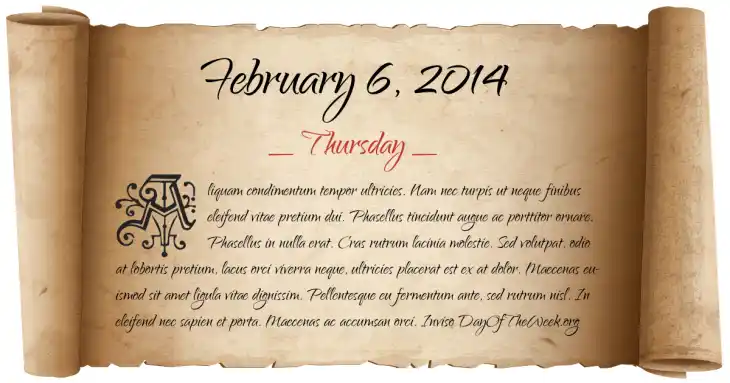 February 6, 2014
_ Thursday _
Aliquam condimentum tempor ultricies. Nam nec turpis ut neque finibus
eleifend vitae pretium dui. Phasellus tincidunt augue ac porttitor ornare.
Phasellus in nulla erat. Cras rutrum lacinia molestie. Sed volutpat, odio
at lobortis pretium, lacus orci viverra neque, ultricies placerat est ex at dolor. Maecenas eu-
ismod sit amet ligula vitae dignissim. Pellentesque eu fermentum ante, sed rutrum nisl. In
eleifend nec sapien et porta. Maecenas ac accumsan orci. Inviso DayOfTheWeek.org